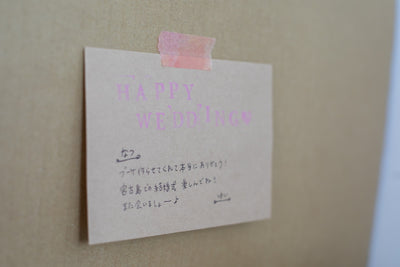 HAPPY
WEDDING♥
なつ
ブーケ作らせてくれて本当にありがとう!
宮古島での結婚式 楽しんでね!
また会いましょー♪
ゆい